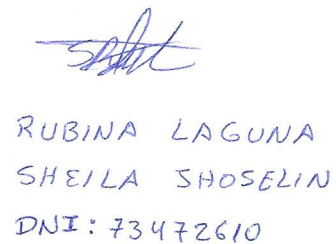 RUBINA LAGUNA
SHEILA JHOSELIN
DNI: 73472610